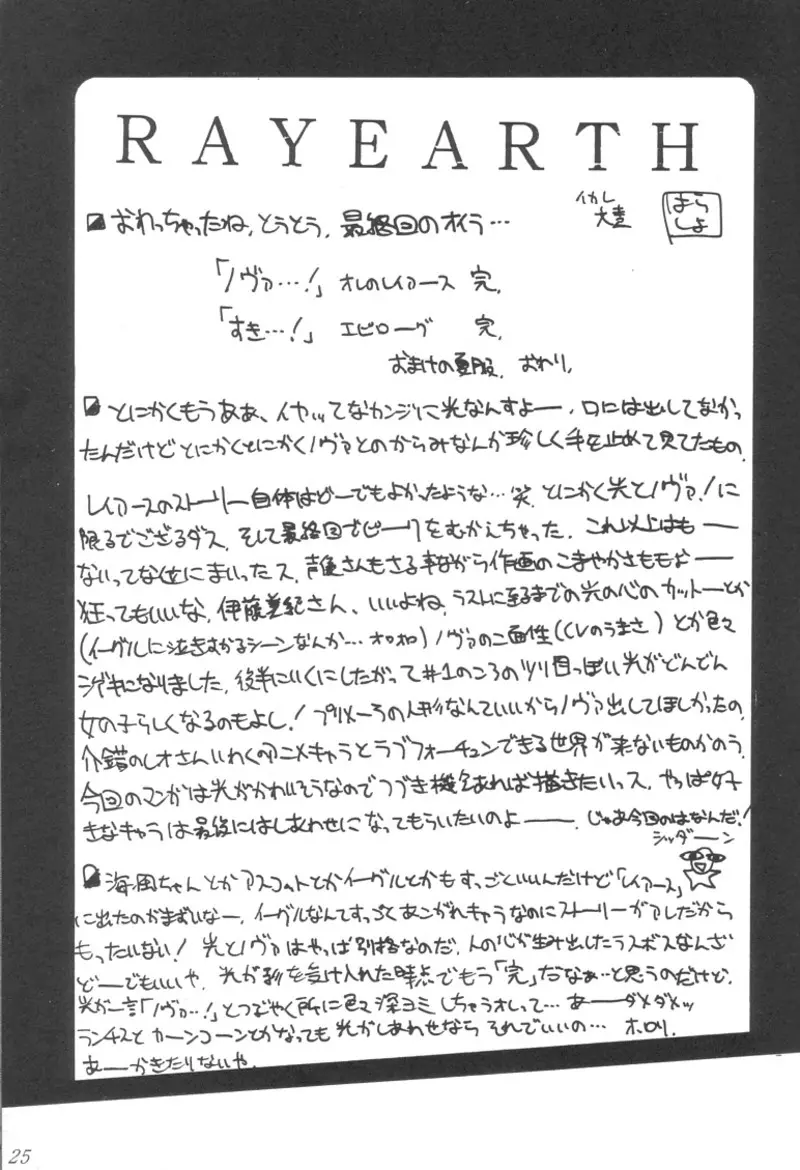 RAYEARTH
イカレ
大書
はら
しょ
おわっちゃったね、とうとう、最終回のオイラ…
「ノヴァ…!」オレのレイアース 完、
「すき…!」エピローグ 完、
おまけの夏服、おわり、
とにかくもうああ、イヤッてなカンジに光なんすよー、口には出してなかっ
たんだけどとにかくとにかくノヴァとのからみなんか珍しく手を止めて見てたもの、
レイアースのストーリー自体はどーでもよかったような…笑、とにかく光とノヴァ!に
限るでござるダス、そして最終回でピークをむかえちゃった、これ以上はも——
ないってな位にまいったス、声優さんもさる事ながら作画のこまやかさももぉ——
狂ってもいいな、伊藤美紀さん、いいよね、ラストに至るまでの光の心のカットーとか
(イーグルに泣きすがるシーンなんか…オロオロ)ノヴァの二面性(CVのうまさ)とか色々
シゲキになりました、後半にいくにしたがって#1のころのツリ目っぽい光がどんどん
女の子らしくなるのもよし!プリメーラの人形なんていいからノヴァ出してほしかったの、
介錯のしオさんいわくのアニメキャラとラブフォーチュンできる世界が来ないものかのう、
今回のマンガは光がかわいそうなのでつづき機会あれば描きたいっス、やっぱ好
きなキャラは最後にはしあわせになってもらいたいのよ——、じゃあ今回のはなんだ!
ジッダーン
海風ちゃんとかアスコットとかイーグルとかもすっごといいんだけど「レイアース」
に出たのがまずいなー、イーグルなんてすっごくあこがれキャラなのにストーリーがアレだから
もったいない!光とノヴァはやっぱ別格なのだ、人の心が生み出したラスボスなんざ
どーでもいいや、光が影を受け入れた時点でもう「完」だなぁ…と思うのだけど、
光が一言「ノヴァ…!」とつぶやく所に色々深ヨミしちゃうオレって…あーーダメダメッ
ランチスとカーンコーンとかなっても光がしあわせならそれでいいの…ホロリ、
あーかきたりないや、
25